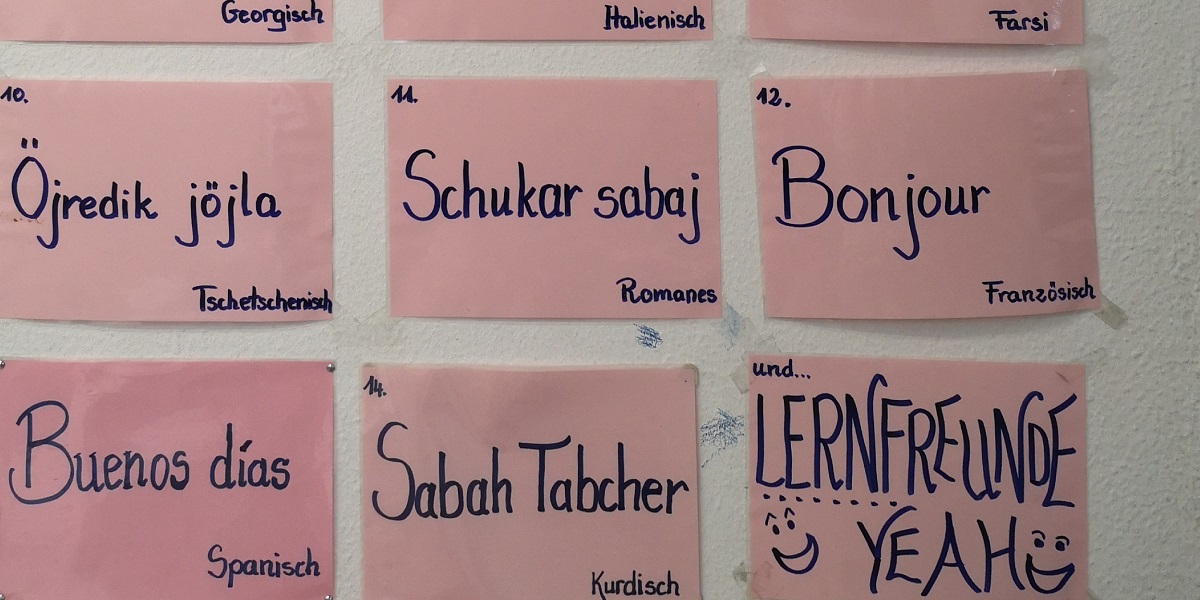 Georgisch
Italienisch
Farsi
10.
Öjredik jöjla
Tschetschenisch
11.
Schukar sabaj
Romanes
12.
Bonjour
Französisch
Buenos días
Spanisch
14.
Sabah Tabcher
Kurdisch
und...
LERNFREUNDE
YEAH